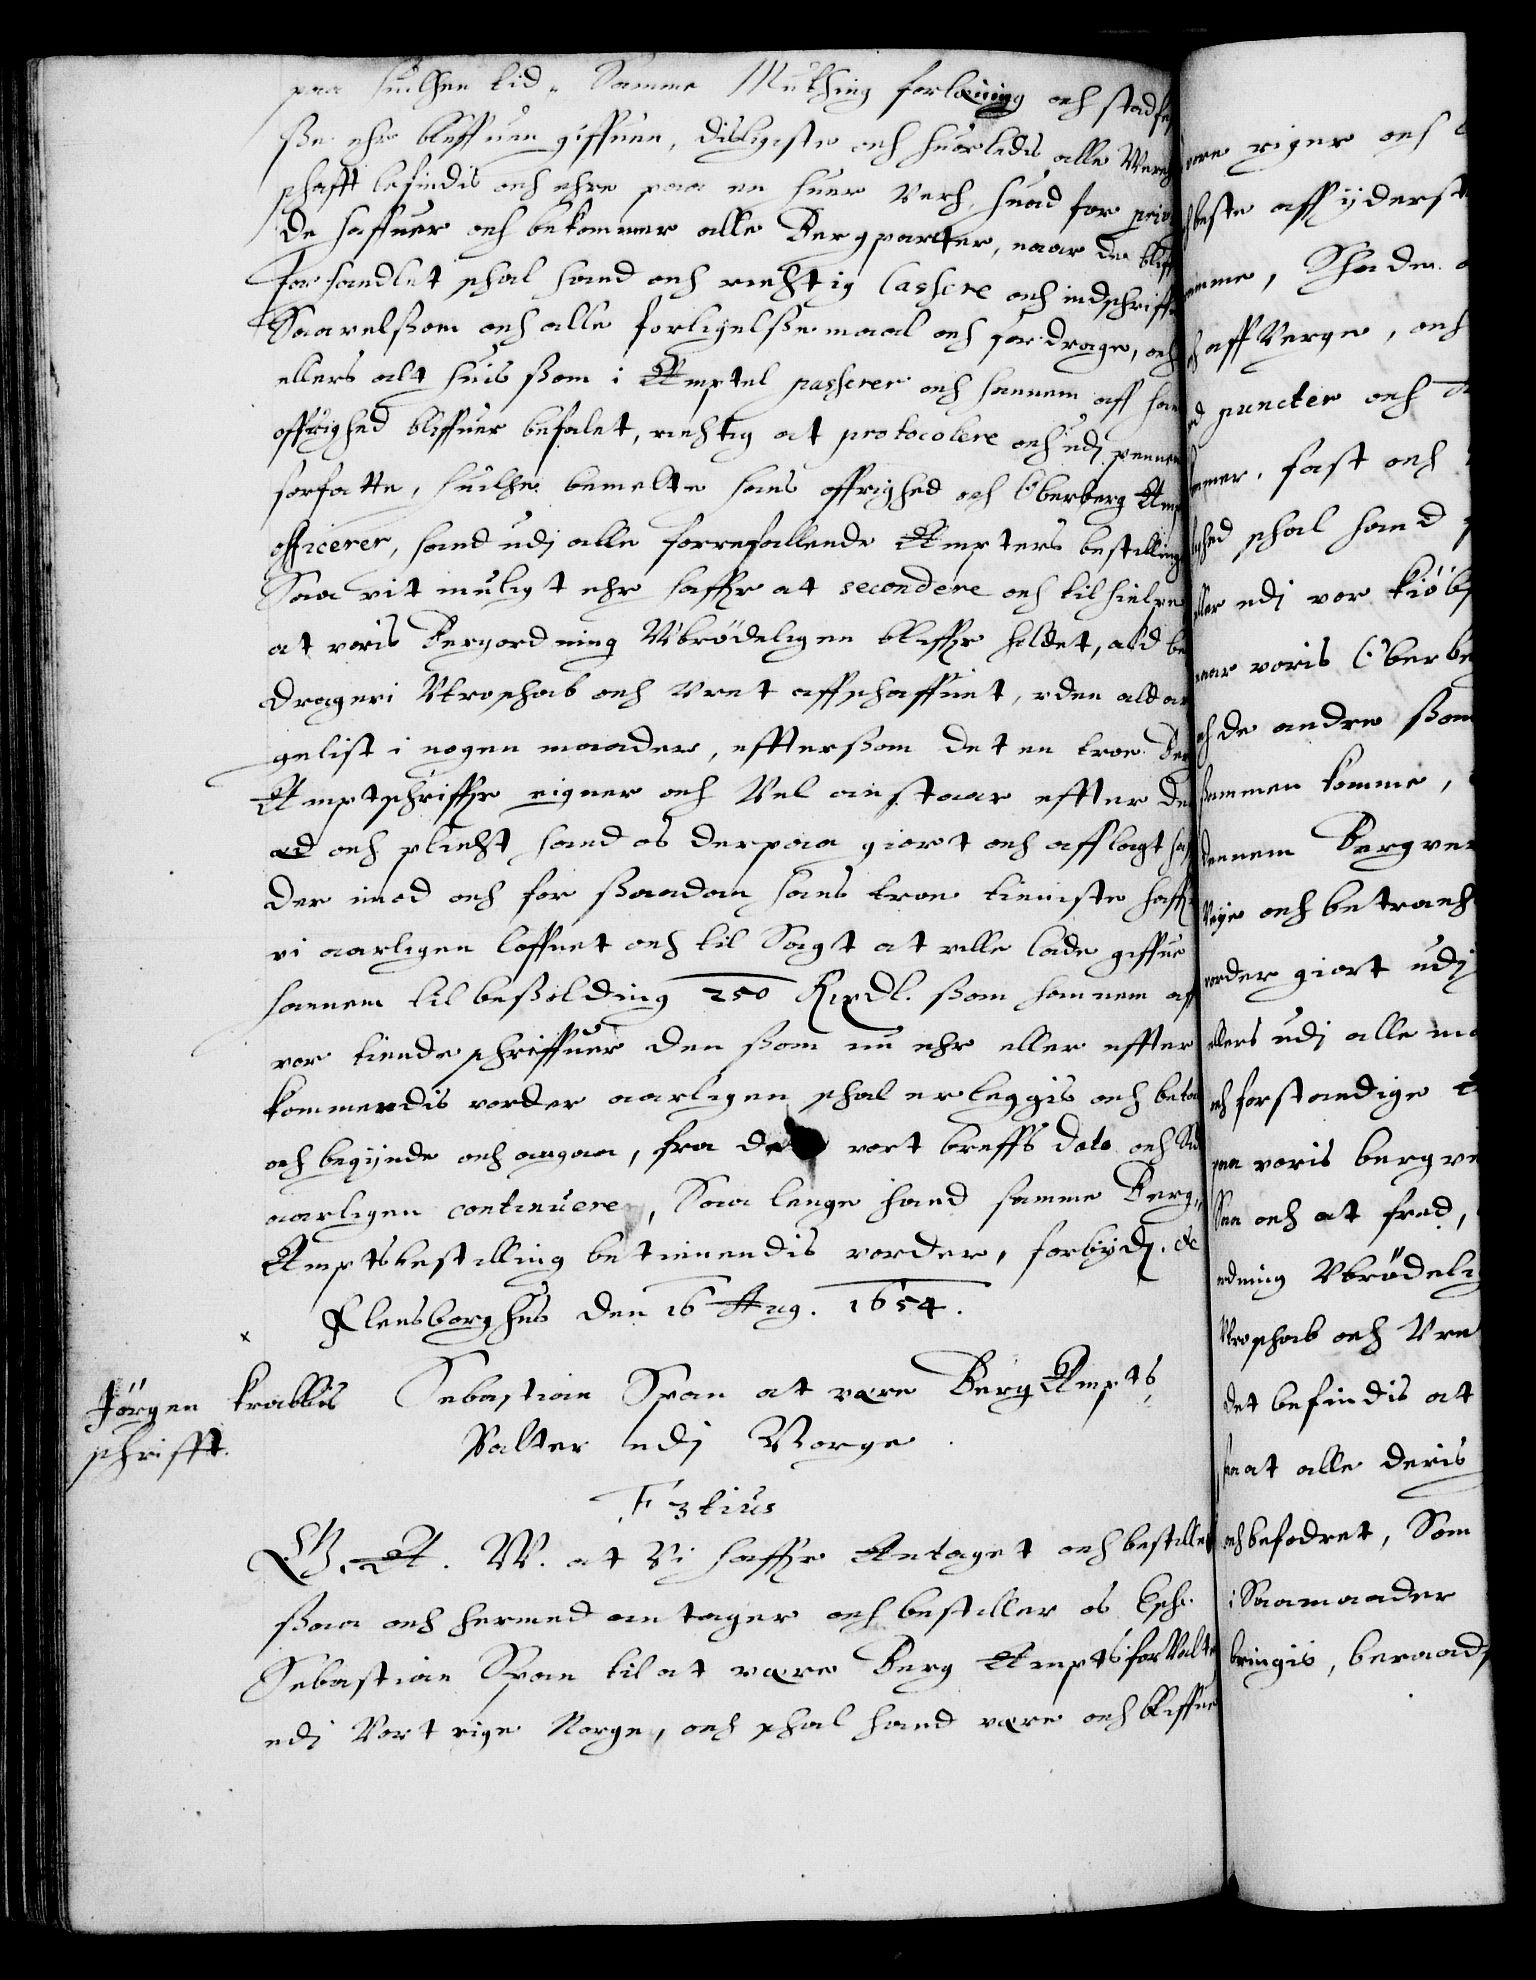 paa huilchen tid, Samme Muthing forlæning och stadfes
ße ehr bleffuen giffuen, disligeste och huorledis alle Werch
schafft befindis och ehre paa en huer Verch, huad for priv
de haffuer och bekommer alle Bergparter, naar de bliff
forhandlet schal hand och richtig Cassere och indschriffu
Saauelsom och alle forligelße maal och fordrage, och
ellers alt huis ßom i Ampted passerer och hannem aff hans
offrighed bliffuer befalet, richtig at protocolere och udj pennen
forfatte, huilche bemelte hans offrighed och Oberberg Ampt
officerer, hand udj alle forrefallende Ampters bestilling
Saa vit muligt ehr haffr at secondere och tilhielpe
at voris Bergordning Vbrödeligen bliffr holdet, ald be
drageri Vtroschab och Vret affschaffuet, vden ald ar
gelist i nogen maader, effterßom det en troe Berg
Amptschriffr eigner och Vel anstaar effter den
æd och plicht hand os derpaa giort och afflagt haffr
Der imod och for ßaadan hans troe tieniste haffr
vi aarligen loffuet och til Sagt at ville lade giffue
hannem til beßolding 250 Rixdl. ßom hannem aff
vor tiende schriffuer den ßom nu ehr eller effter
kommendis vorder aarligen schal erleggis och beta
och begynde och angaa, fra de vort breffs dato och
aarligen continuere, Saa lenge hand samme Berg,
Amptsbestilling betienendis vorder, forbydj. etc
Flensborghus den 16 Aug. 1654.
x
Jörgen Krabbis
schrifft.
Sebastian Span at vere Berg Ampts,
Valter udj Norge.
F. 3tius
G. A. W. at Vi haffr Antaget och bestillet
ßaa och hermed antager och bestiller os Elsk.
Sebastian Span til at være Berg Ampts forValter
udj Vort rige Norge, och schal hand være och bliffue
vore riger och
beste aff yderst
omme, Schade
aff Verge, och
puncter och
fast och
hed schal hand
eller udj vor Kiöbs
naar voris Oberbe
och de andre ßom
sammen komme,
dennem Bergver
Veye och betrach
vorder giort udj
ellers udj alle ma
och forstandige
paa voris bergve
Saa och at fred,
ordning Vbrödelig
Vtroschab och Vre
det befindis at
faat alle deris
och befodret, Som
i Saamaader
bringis, beraads